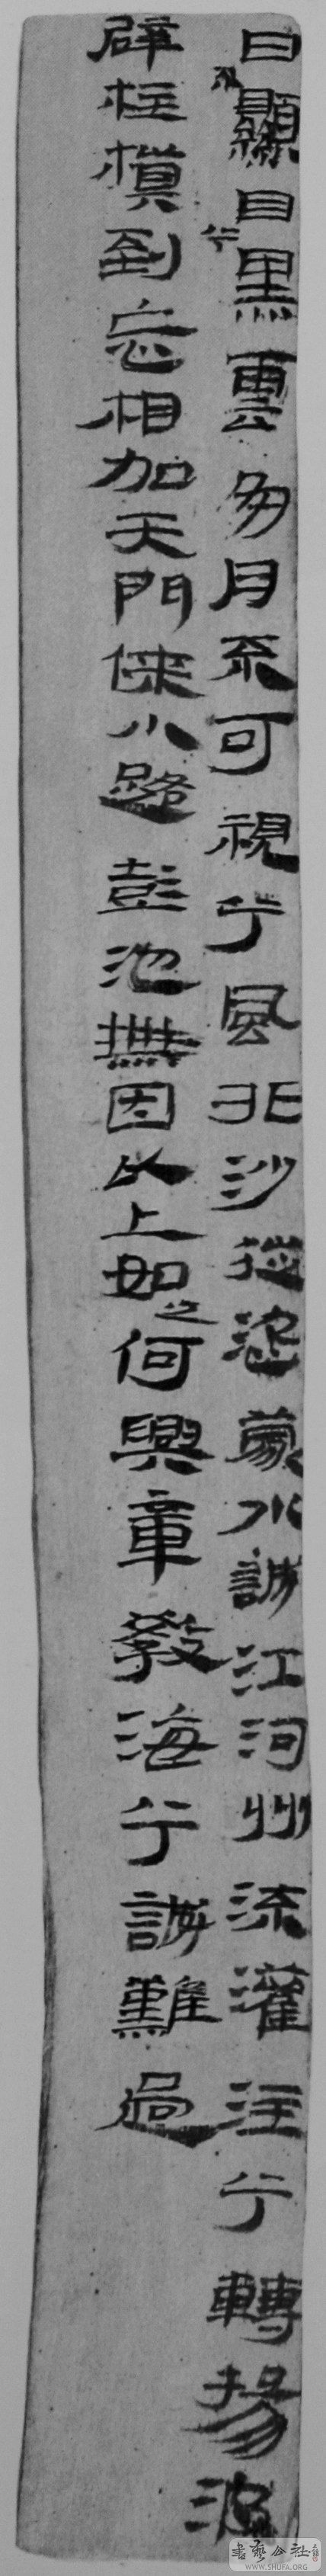 日不顯目兮黑雲多月不可視兮風非沙從恣蒙水誠江河州流灌注兮轉揚波
辟柱槙到忘相加天門俠小路彭池無因以上如之何興章教海兮誠難過
書藝公社
WWW.SHUFA.ORG